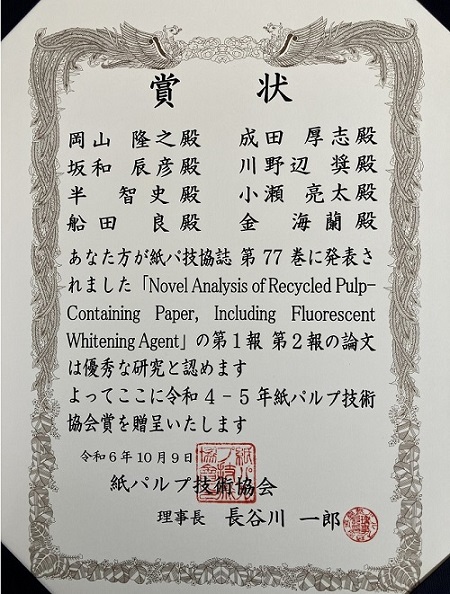 賞 状
岡山 隆之殿 成田 厚志殿
坂和 辰彦殿 川野辺 奨殿
半 智史殿 小瀬 亮太殿
船田 良殿 金 海蘭殿
あなた方が紙パ技協誌 第77巻に発表さ
れました「Novel Analysis of Recycled Pulp-
Containing Paper, Including Fluorescent
Whitening Agent」の第1報 第2報の論文
は優秀な研究と認めます
よってここに令和4-5年紙パルプ技術
協会賞を贈呈いたします
令和6年10月9日
紙パルプ技術協会
理事長 長谷川 一郎